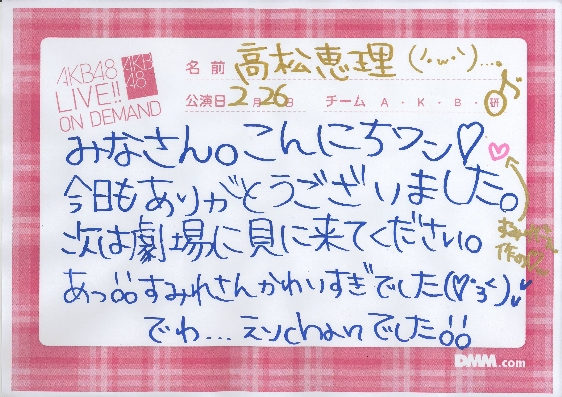 AKB48
LIVE!!
ON DEMAND
AKB
48
名前 高松恵理(´・ω・`)...♪
公演日 2月26日 チーム A・K・B・研
みなさん。こんにちワン♡
今日もありがとうございました。
次は劇場に見に来てください。
あっ!!すみれさんかわいすぎでした(♡´3`)
でわ...えりchanでした!!
DMM.com